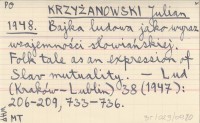 PO KRZYŻANOWSKI Julian
1948. Bajka ludowa jako wyraz
wzajemności słowiańskiej.
Folk tale as an expression of
Slav mutuality. — Lud
(Kraków-Lublin) 38 (1947):
206-209, 733-736.
MT